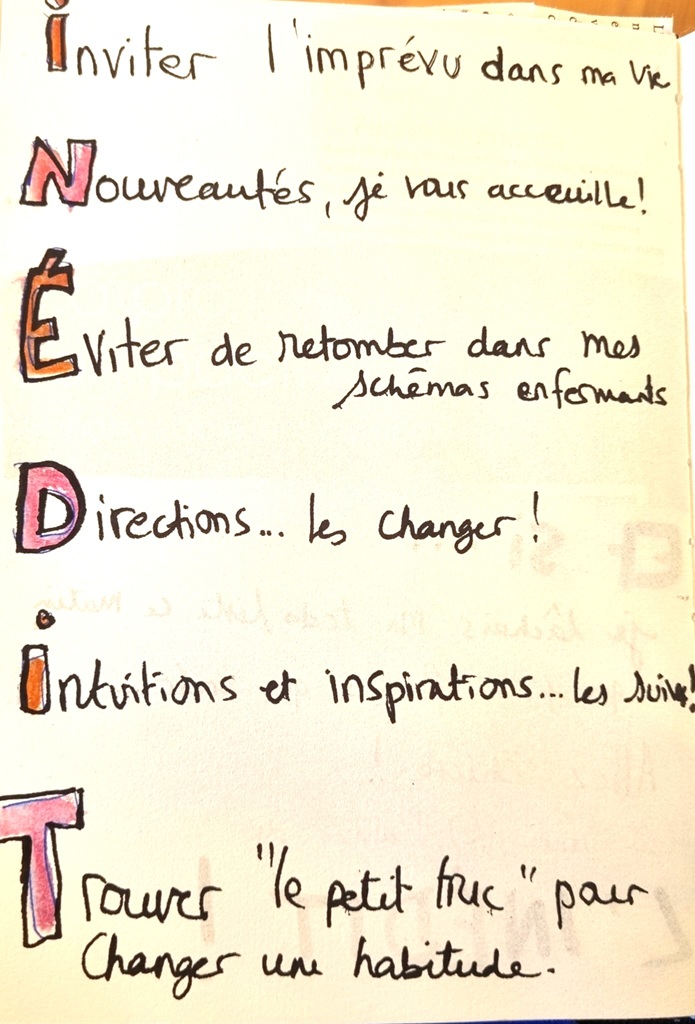 inviter l'imprévu dans ma vie
Nouveautés, je vous acceuille!
Éviter de retomber dans mes
schémas enfermants
Directions... les changer!
intuitions et inspirations... les suivre!
Trouver "le petit truc" pour
Changer une habitude.